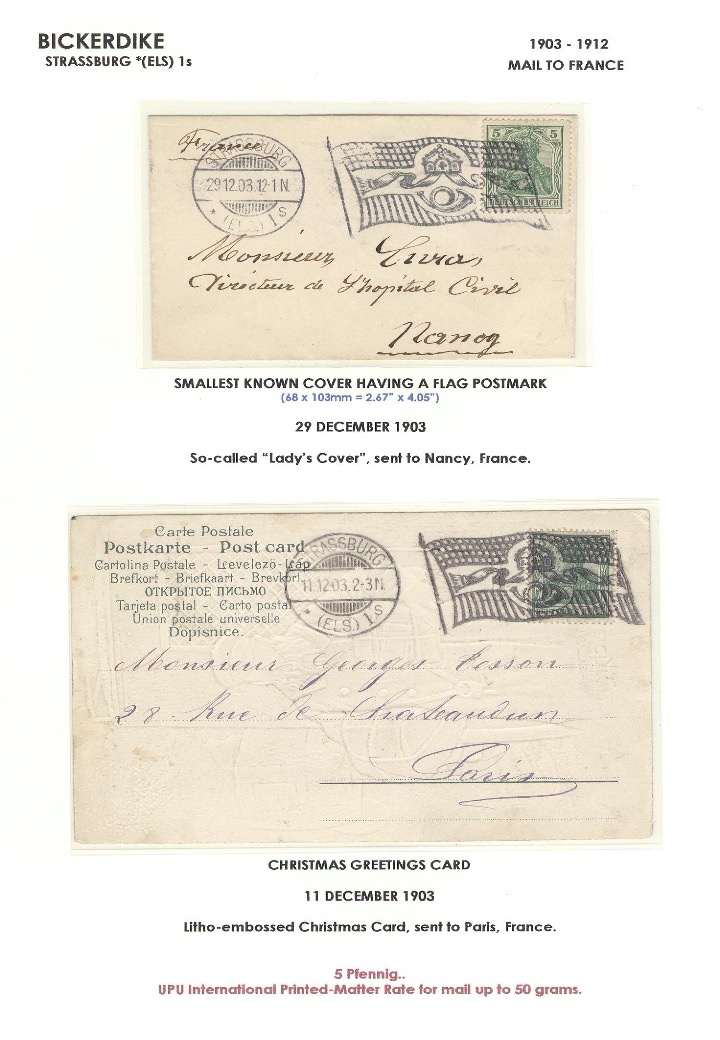 BICKERDIKE
STRASSBURG *(ELS) 1s
1903 - 1912
MAIL TO FRANCE
France
STRASSBURG
29.12.03.12-1N.
* (ELS) 1s
5 5
DEUTSCHES REICH
Monsieur
Directeur de L'hopital Civil
Nancy
SMALLEST KNOWN COVER HAVING A FLAG POSTMARK
(68 x 103mm = 2.67" x 4.05")
29 DECEMBER 1903
So-called "Lady's Cover", sent to Nancy, France.
Carte Postale
Postkarte - Post card
Cartolina Postale - Levelező-Lap
Brefkort - Briefkaart - Brevkort
ОТКРЫТОЕ ПИСЬМО
Tarjeta postal - Carto postal
Union postale universelle
Dopisnice.
STRASSBURG
11.12.03.2-3N.
* (ELS) 1s
Monsieur Georges
28 Rue de Chateaudun
Paris
CHRISTMAS GREETINGS CARD
11 DECEMBER 1903
Litho-embossed Christmas Card, sent to Paris, France.
5 Pfennig..
UPU International Printed-Matter Rate for mail up to 50 grams.